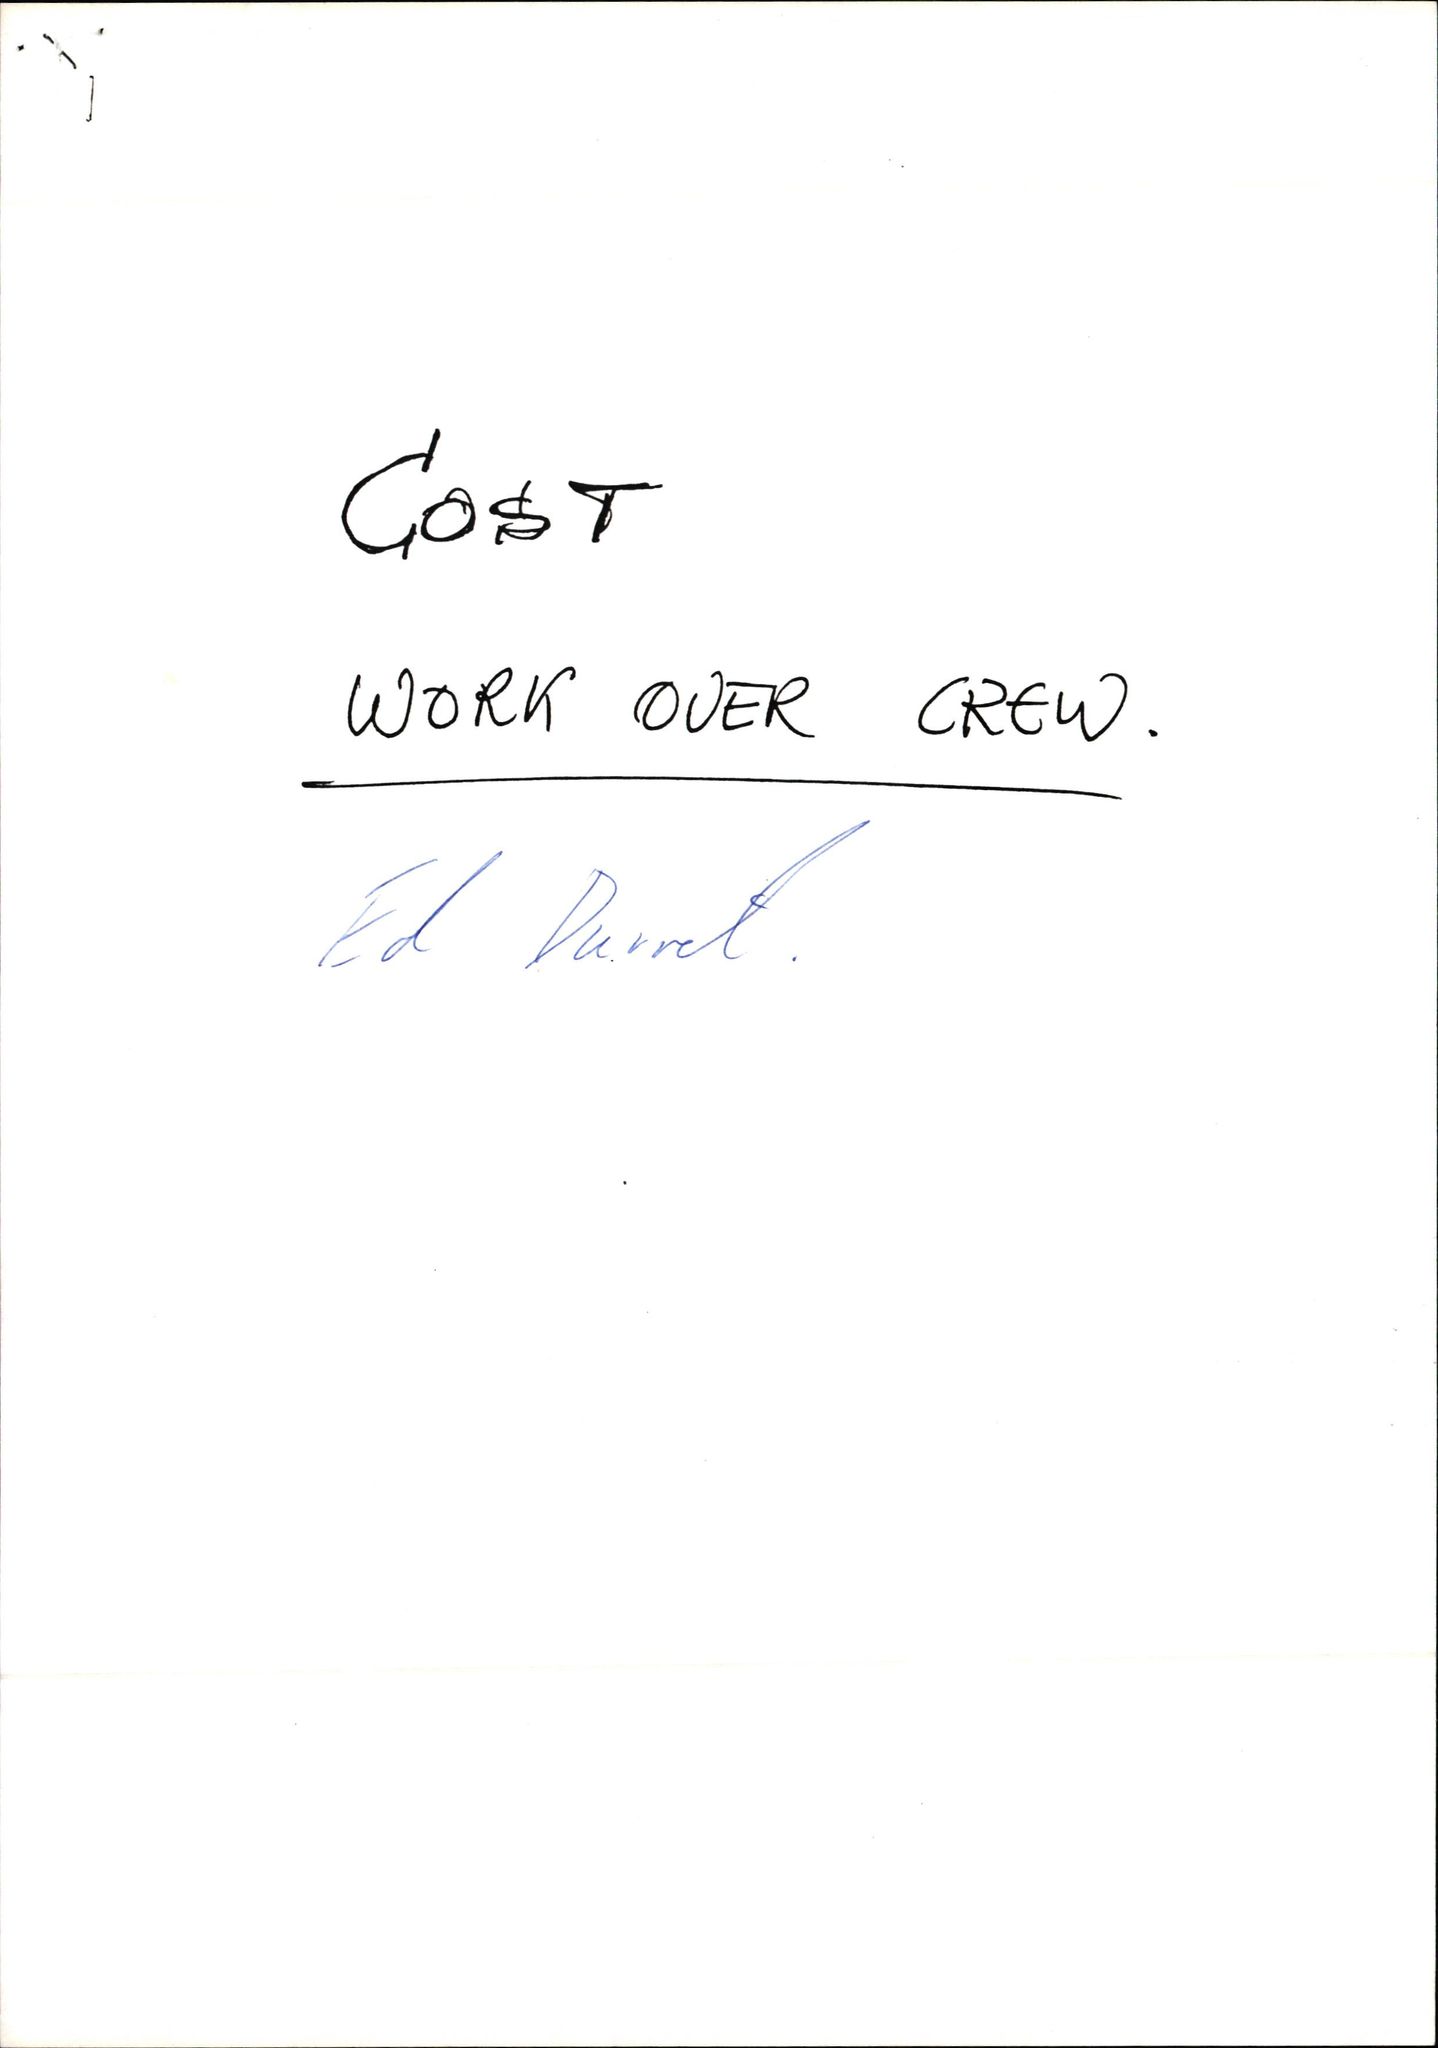 COST
WORK OVER CREW.
Ed Durrel.